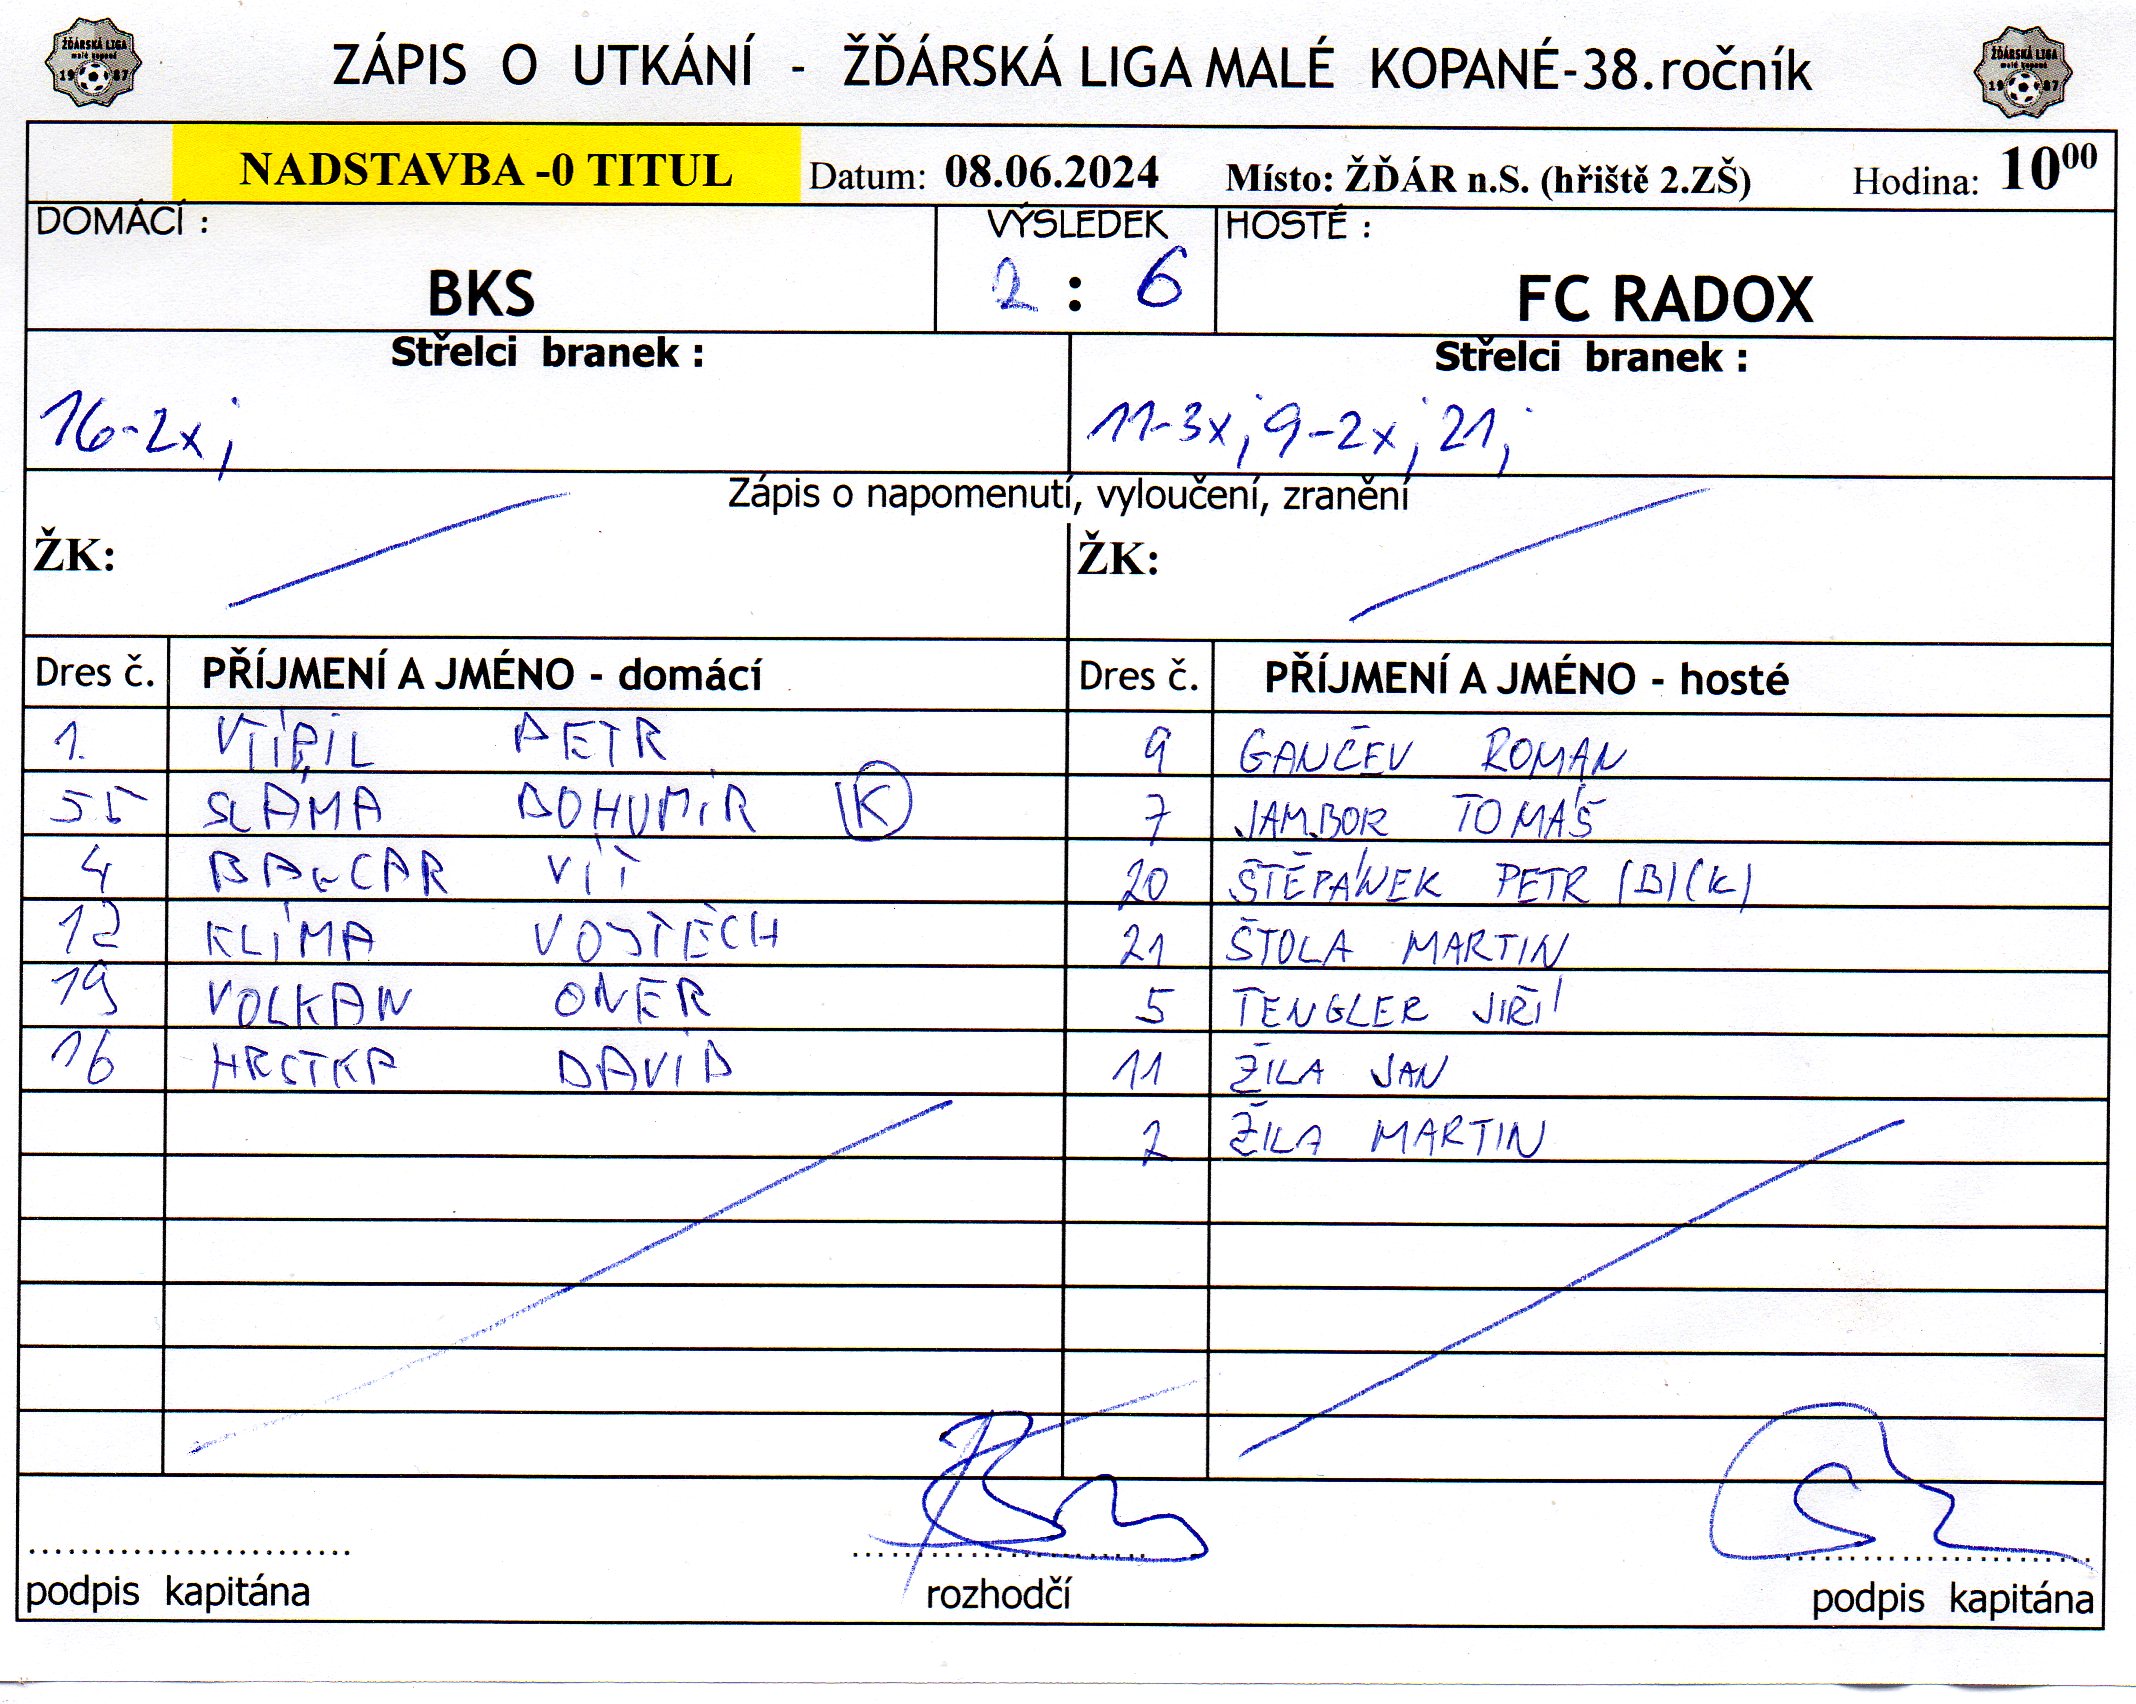 ŽĎÁRSKÁ LIGA
malé kopané
1987
ZÁPIS O UTKÁNÍ - ŽĎÁRSKÁ LIGA MALÉ KOPANÉ-38.ročník
ŽĎÁRSKÁ LIGA
malé kopané
1987
NADSTAVBA -0 TITUL Datum: 08.06.2024 Místo: ŽĎÁR n.S. (hřiště 2.ZŠ) Hodina: 10⁰⁰
DOMÁCÍ : VÝSLEDEK HOSTÉ :
BKS 2 : 6 FC RADOX
Střelci branek : Střelci branek :
16-2x; 11-3x; 9-2x; 21;
Zápis o napomenutí, vyloučení, zranění
ŽK: ŽK:
Dres č. PŘÍJMENÍ A JMÉNO - domácí Dres č. PŘÍJMENÍ A JMÉNO - hosté
1. VTÍPIL PETR 9 GANČEV ROMAN
55 SLÁMA BOHUMÍR (K) 7 JAMBOR TOMÁŠ
4 BALCAR VÍT 20 ŠTĚPÁNEK PETR (B)(K)
12 KLÍMA VOJTĚCH 21 ŠTOLA MARTIN
19 VOLKAN ONER 5 TENGLER JIŘÍ
16 HRSTKA DAVID 11 ŽILA JAN
2 ŽILA MARTIN
podpis kapitána rozhodčí podpis kapitána